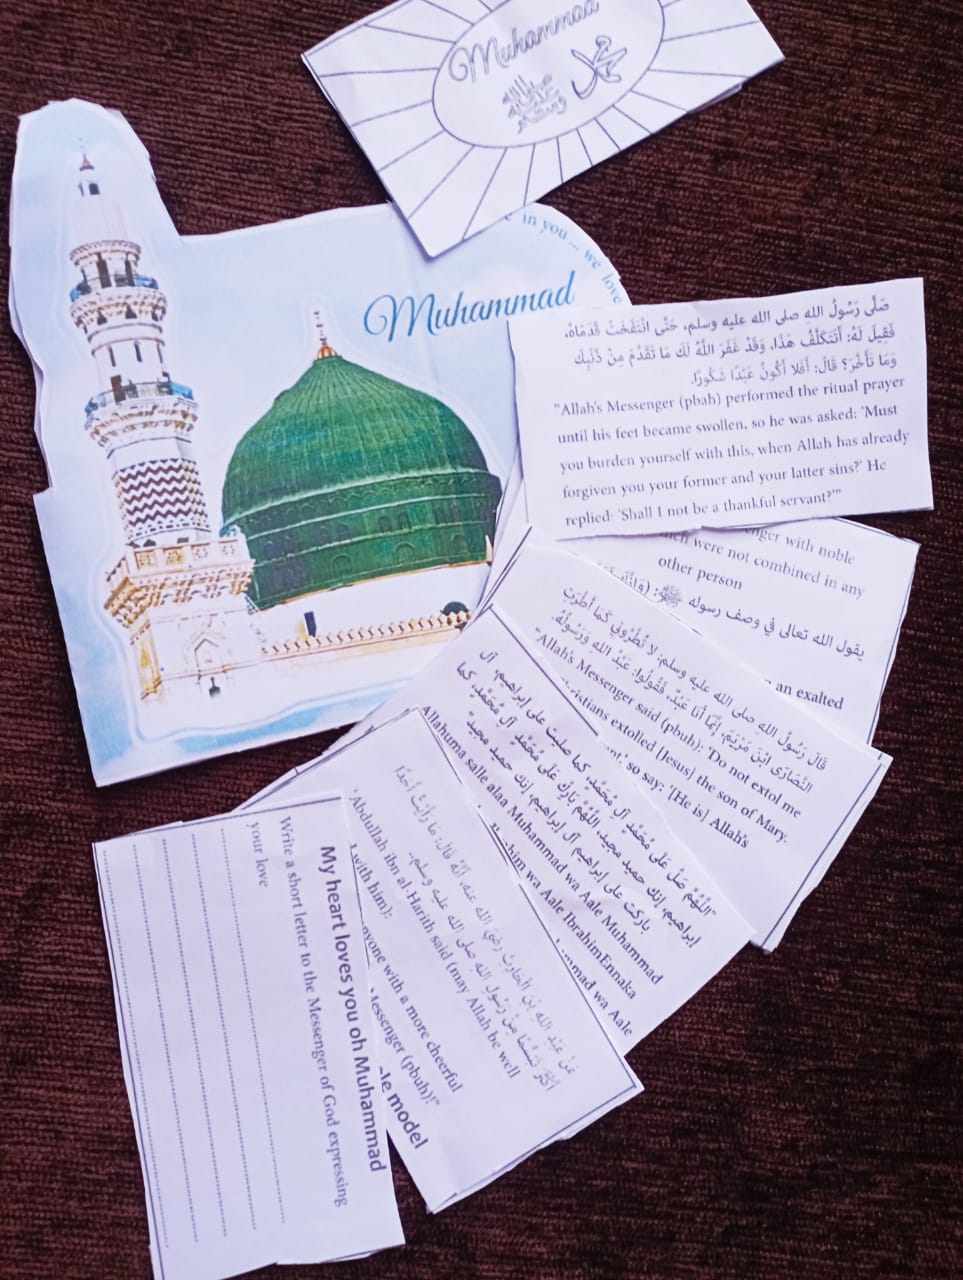 Muhammad
محمد
صلى الله
عليه
وسلم
e in you ... we love
Muhammad
صَلَّى رَسُولُ الله صلى الله عليه وسلم، حَتَّى انْتَفَخَتْ قَدَمَاهُ،
فَقِيلَ لَهُ: أَتَتَكَلَّفُ هَذَا، وَقَدْ غَفَرَ اللَّهُ لَكَ مَا تَقَدَّمَ مِنْ ذَنْبِكَ
وَمَا تَأَخَّرَ؟ قَالَ: أَفَلا أَكُونُ عَبْدًا شَكُورًا.
"Allah's Messenger (pbah) performed the ritual prayer
until his feet became swollen, so he was asked: 'Must
you burden yourself with this, when Allah has already
forgiven you your former and your latter sins?' He
replied: 'Shall I not be a thankful servant?'"
nger with noble
ich were not combined in any
other person
يقول الله تعالى في وصف رسوله ﷺ: (وَإِنَّكَ
an exalted
قَالَ رَسُولُ الله صلى الله عليه وسلم: لا تُطْرُونِي كَمَا أَطْرَتِ
النَّصَارَى ابْنَ مَرْيَمَ، إِنَّمَا أَنَا عَبْدٌ، فَقُولُوا: عَبْدُ الله وَرَسُولُهُ.
"Allah's Messenger said (pbuh): 'Do not extol me
ristians extolled [Jesus] the son of Mary.
nt, so say: '[He is] Allah's
"اللَّهُمَّ صَلِّ عَلَى مُحَمَّدٍ، آل مُحَمَّدٍ، كما صليت على إبراهيم، آل
إبراهيم، إنك حميد مجيد، اللَّهُمَّ بَارِكْ عَلَى مُحَمَّدٍ، آل مُحَمَّدٍ، كما
باركت على إبراهيم آل إبراهيم، إنك حميد مجيد"
Allahuma salle alaa Muhammad wa Aale Muhammad
him wa Aale IbrahimEnnaka
mmad wa Aale
عَنْ عَبْدِ اللهِ بْنِ الْحَارِثِ رَضِيَ الله عنه، أَنَّهُ قَالَ: مَا رَأَيْتُ أَحَدًا
أَكْثَرَ تَبَسُّمًا مِنْ رَسُولِ الله صلى الله عليه وسلم..
'Abdullah ibn al-Harith said (may Allah be well
with him):
nyone with a more cheerful
Messenger (pbuh)!"
le model
My heart loves you oh Muhammad
Write a short letter to the Messenger of God expressing
your love